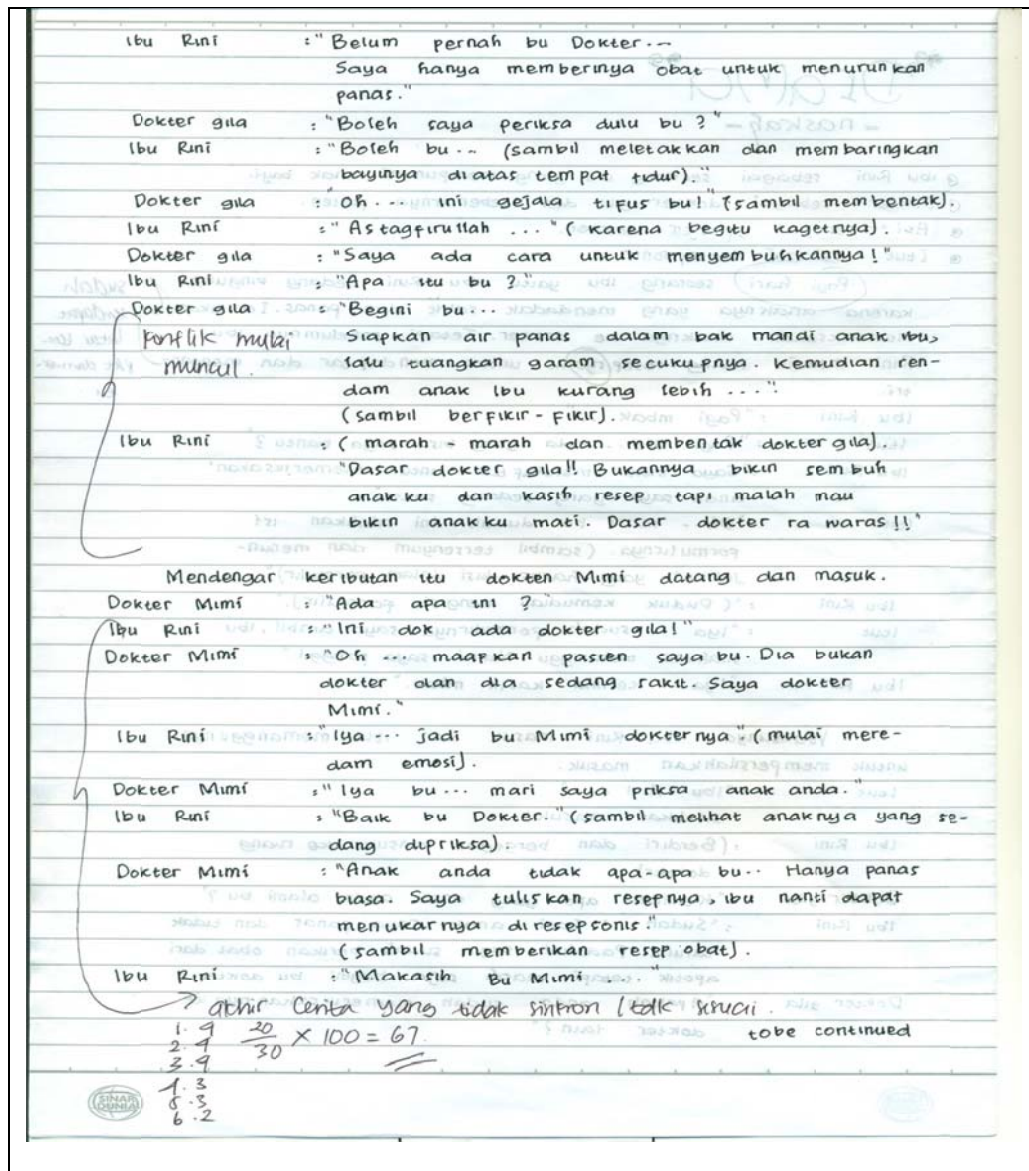 Ibu Rini : "Belum pernah bu Dokter..-
Saya hanya memberinya obat untuk menurunkan
panas."
Dokter gila : "Boleh saya periksa dulu bu ?"
Ibu Rini : "Boleh bu... (sambil meletakkan dan membaringkan
bayinya diatas tempat tidur)."
Dokter gila : "Oh... ini gejala tifus bu!" (sambil membentak).
Ibu Rini : "Astagfirullah ..." (karena begitu kagetnya).
Dokter gila : "Saya ada cara untuk menyembuhkannya!"
Ibu Rini : "Apa itu bu ?"
Dokter gila : "Begini bu...
konflik mulai Siapkan air panas dalam bak mandi anak ibu,
muncul. lalu tuangkan garam secukupnya. Kemudian ren-
dam anak Ibu kurang lebih ..."
(sambil berfikir-fikir).
Ibu Rini : (marah-marah dan membentak dokter gila).
"Dasar dokter gila!! Bukannya bikin sembuh
anakku dan kasih resep tapi malah mau
bikin anakku mati. Dasar dokter ra waras!!"
Mendengar keributan itu dokten Mimi datang dan masuk.
Dokter Mimi : "Ada apa ini ?"
Ibu Rini : "Ini dok ada dokter gila!"
Dokter Mimi : "Oh ... maafkan pasien saya bu. Dia bukan
dokter dan dia sedang sakit. Saya dokter
Mimi."
Ibu Rini : "Iya ... jadi bu Mimi dokternya" (mulai mere-
dam emosi).
Dokter Mimi : "Iya bu... mari saya priksa anak anda."
Ibu Rini : "Baik bu Dokter." (sambil melihat anaknya yang se-
dang dipriksa).
Dokter Mimi : "Anak anda tidak apa-apa bu.. Hanya panas
biasa. Saya tuliskan resepnya, ibu nanti dapat
menukarnya diresepsonis."
(sambil memberikan resep obat).
Ibu Rini : "Makasih Bu Mimi ... "
akhir cerita yang tidak sinkron (tdk sesuai
to be continued
20/30 × 100 = 67
1. 4
2. 4
3. 4
4. 3
5. 3
6. 2
SINAR DUNIA